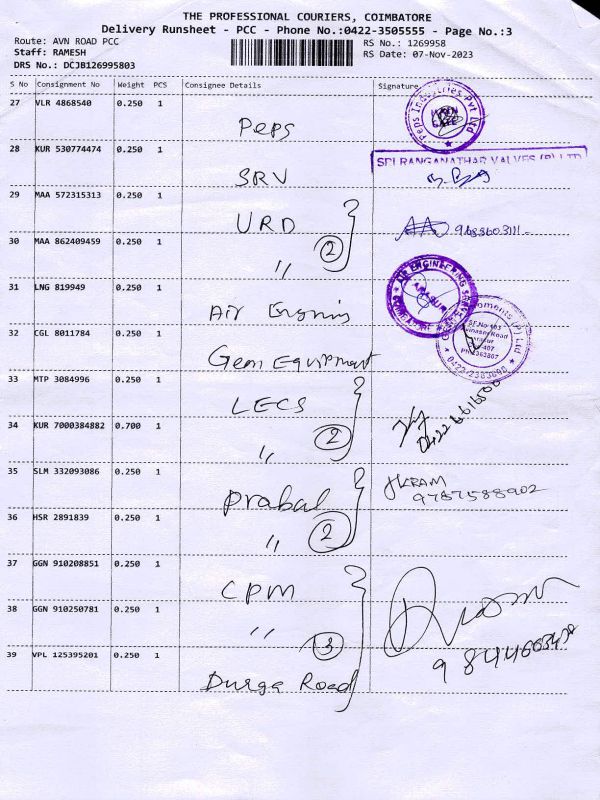 THE PROFESSIONAL COURIERS, COIMBATORE
Delivery Runsheet - PCC - Phone No.:0422-3505555 - Page No.:3
Route: AVN ROAD PCC
RS No.: 1269958
Staff: RAMESH
RS Date: 07-Nov-2023
DRS No.: DCJB126995803
S No Consignment No Weight PCS Consignee Details Signature
27 VLR 4868540 0.250 1
Peps
Peps Industries Pvt Ltd
28 KUR 530774474 0.250 1
SRV
SRI RANGANATHAR VALVES (P) LTD
29 MAA 572315313 0.250 1
URD
30 MAA 862409459 0.250 1
〃 2
31 LNG 819949 0.250 1
Air
AIR ENGINEERING
32 CGL 8011784 0.250 1
Gem Equipment
0422/2363800
33 MTP 3084996 0.250 1
LECS
34 KUR 7000384882 0.700 1
〃 2
35 SLM 332093086 0.250 1
Prabal
9787588902
36 HSR 2891839 0.250 1
〃 2
37 GGN 910208851 0.250 1
CPM
38 GGN 910250781 0.250 1
〃 3
39 VPL 125395201 0.250 1
Durga Road